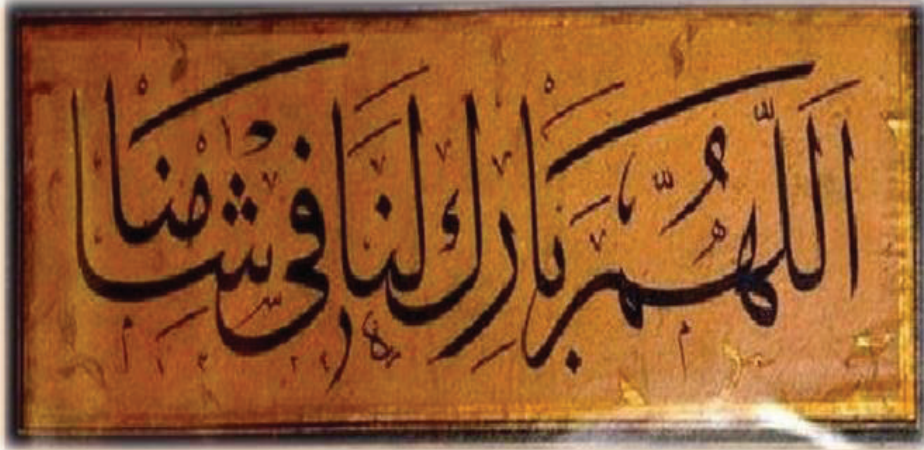 اَللّٰهُمَّ بَارِكْ لَنَا فِي شَامِنَا